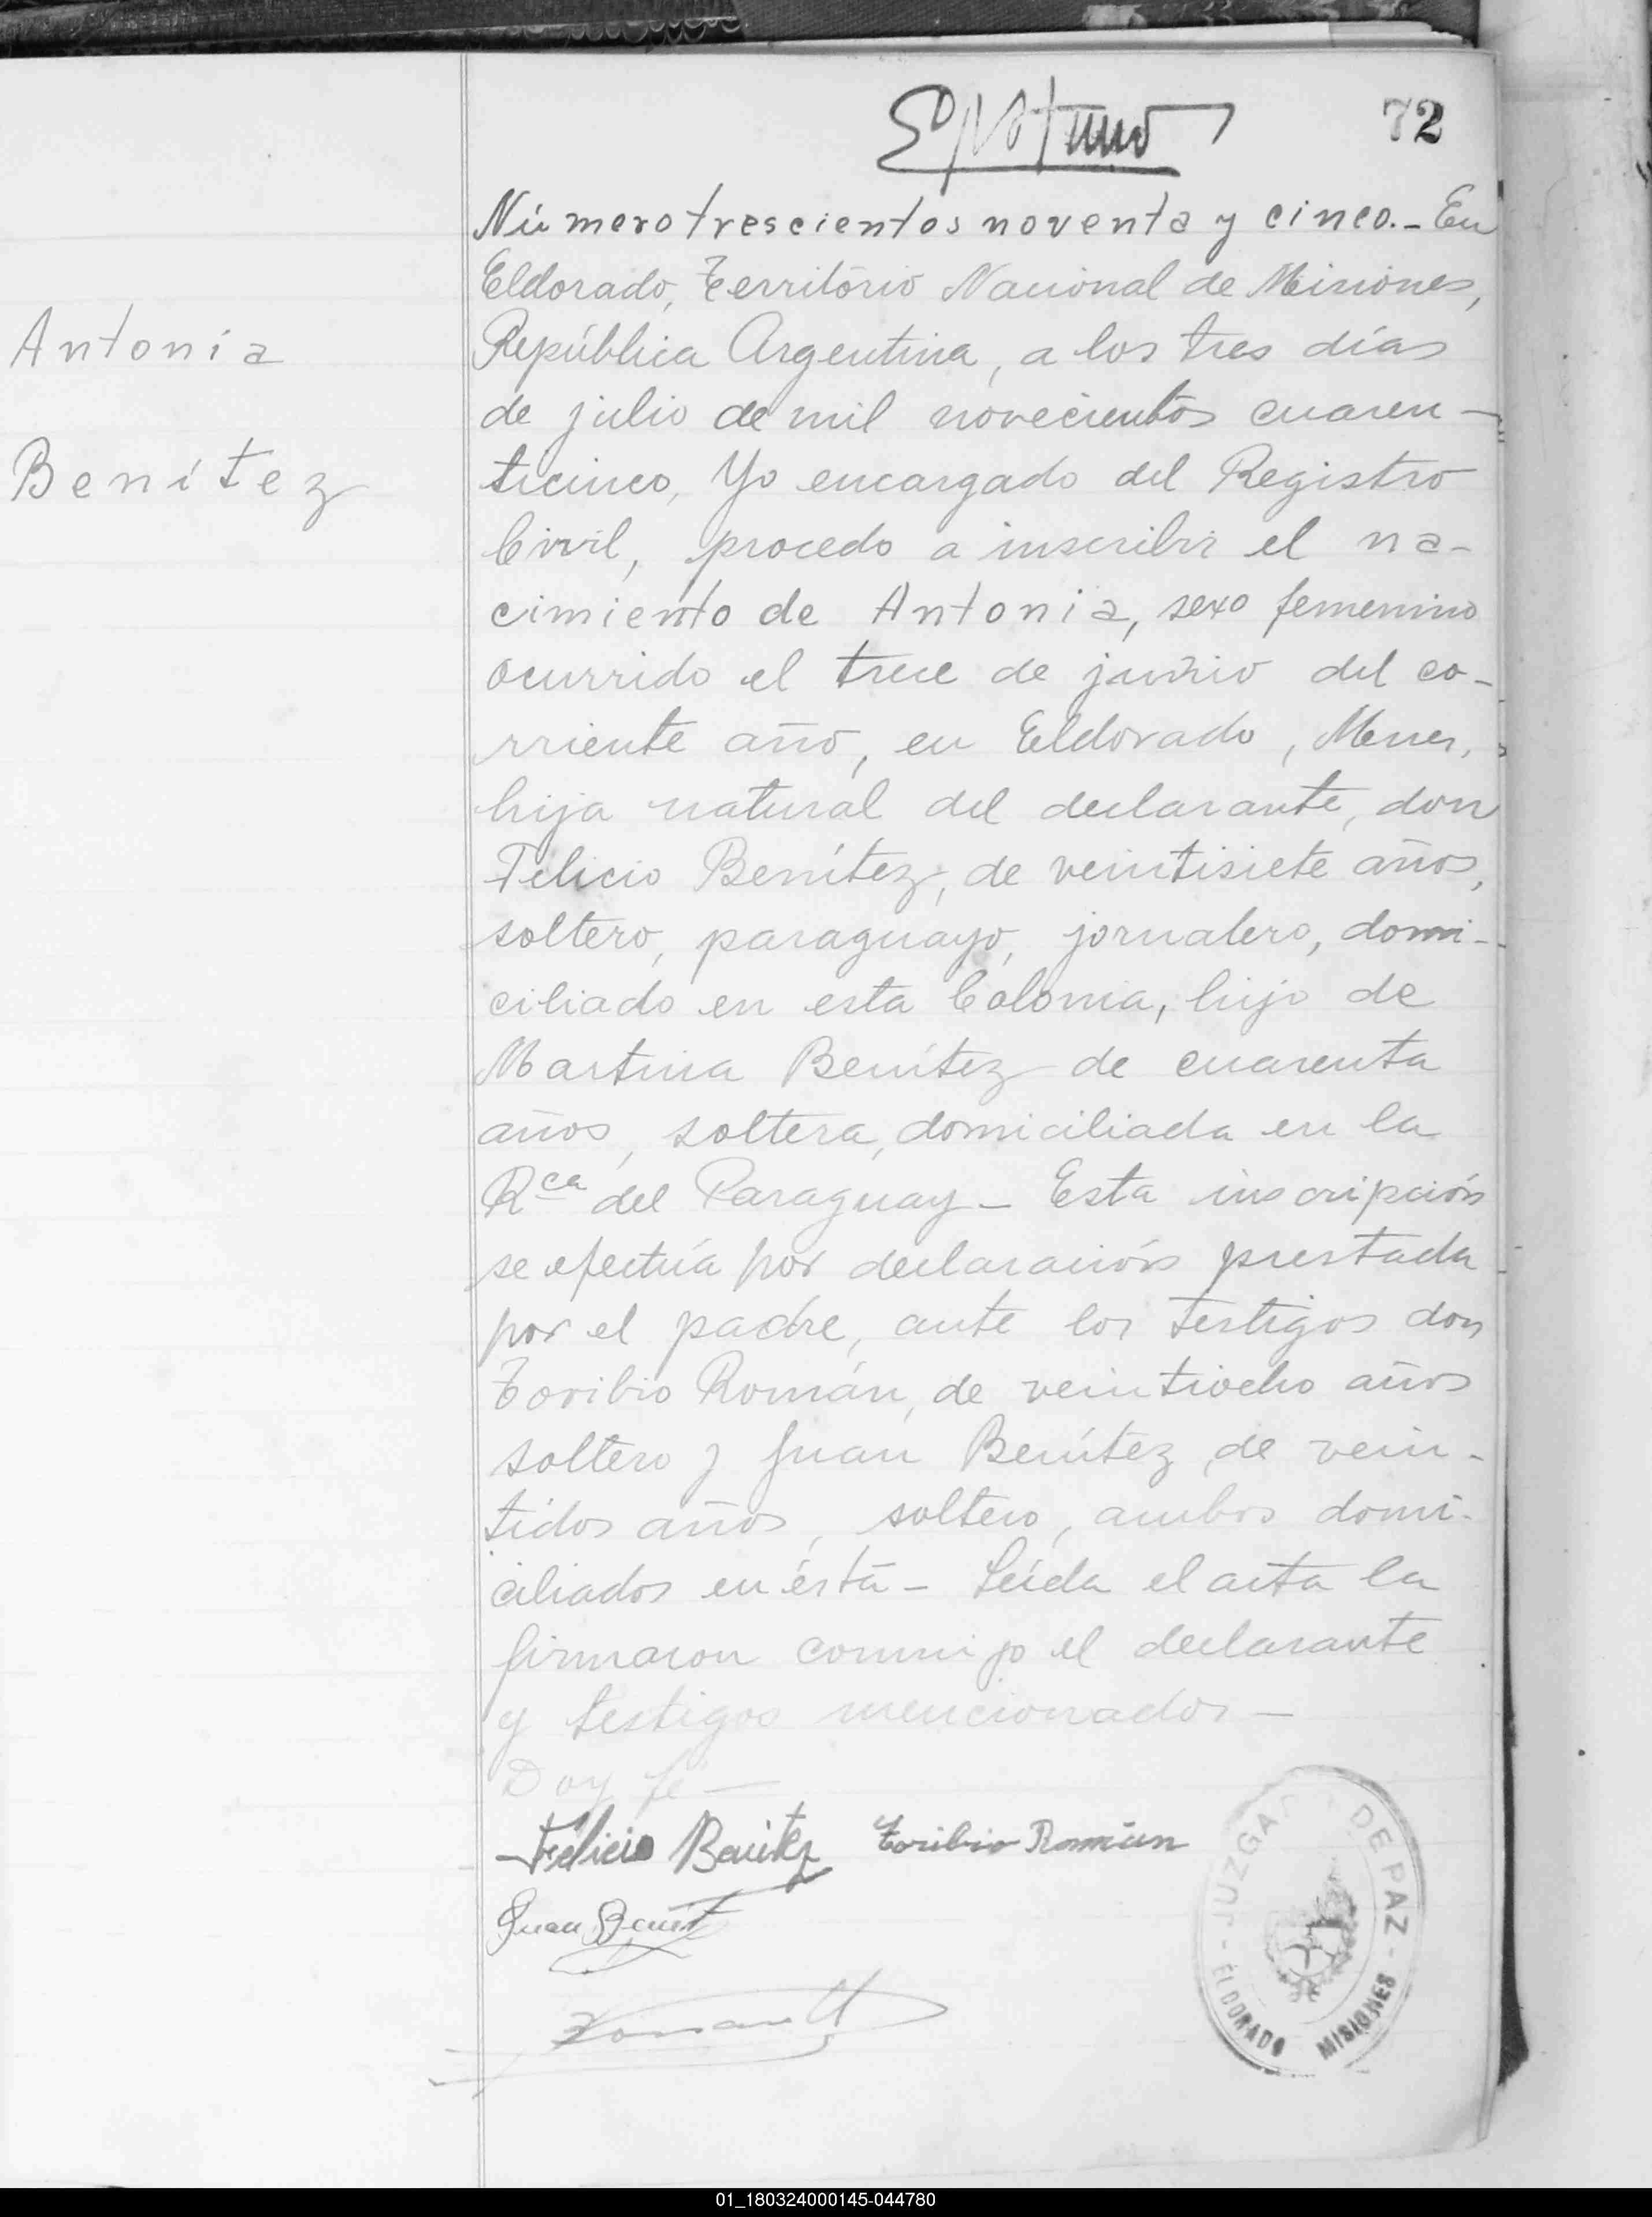 72
Número trescientos noventa y cinco.- En
Eldorado, Territorio Nacional de Misiones,
Antonia
República Argentina, a los tres días
de julio de mil novecientos cuaren-
Benítez
ticinco, Yo encargado del Registro
Civil, procedo a inscribir el na-
cimiento de Antonia, sexo femenino
ocurrido el trece de junio del co-
rriente año, en Eldorado, Mnes,
hija natural del declarante, don
Felicio Benítez, de veintisiete años,
soltero, paraguayo, jornalero, domi-
ciliado en esta Colonia, hijo de
Martina Benítez de cuarenta
años, soltera, domiciliada en la
Rca del Paraguay - Esta inscripción
se efectúa por declaración prestada
por el padre, ante los testigos don
Toribio Román, de veintiocho años
soltero y Juan Benítez, de vein-
tidos años, soltero, ambos domi-
ciliados en ésta - Leída el acta la
firmaron conmigo el declarante
y testigos mencionados -
Doy fé -
Felicio Benitez Toribio Román
Juan Benit
JUZGADO DE PAZ
- ELDORADO MISIONES -
01_180324000145-044780